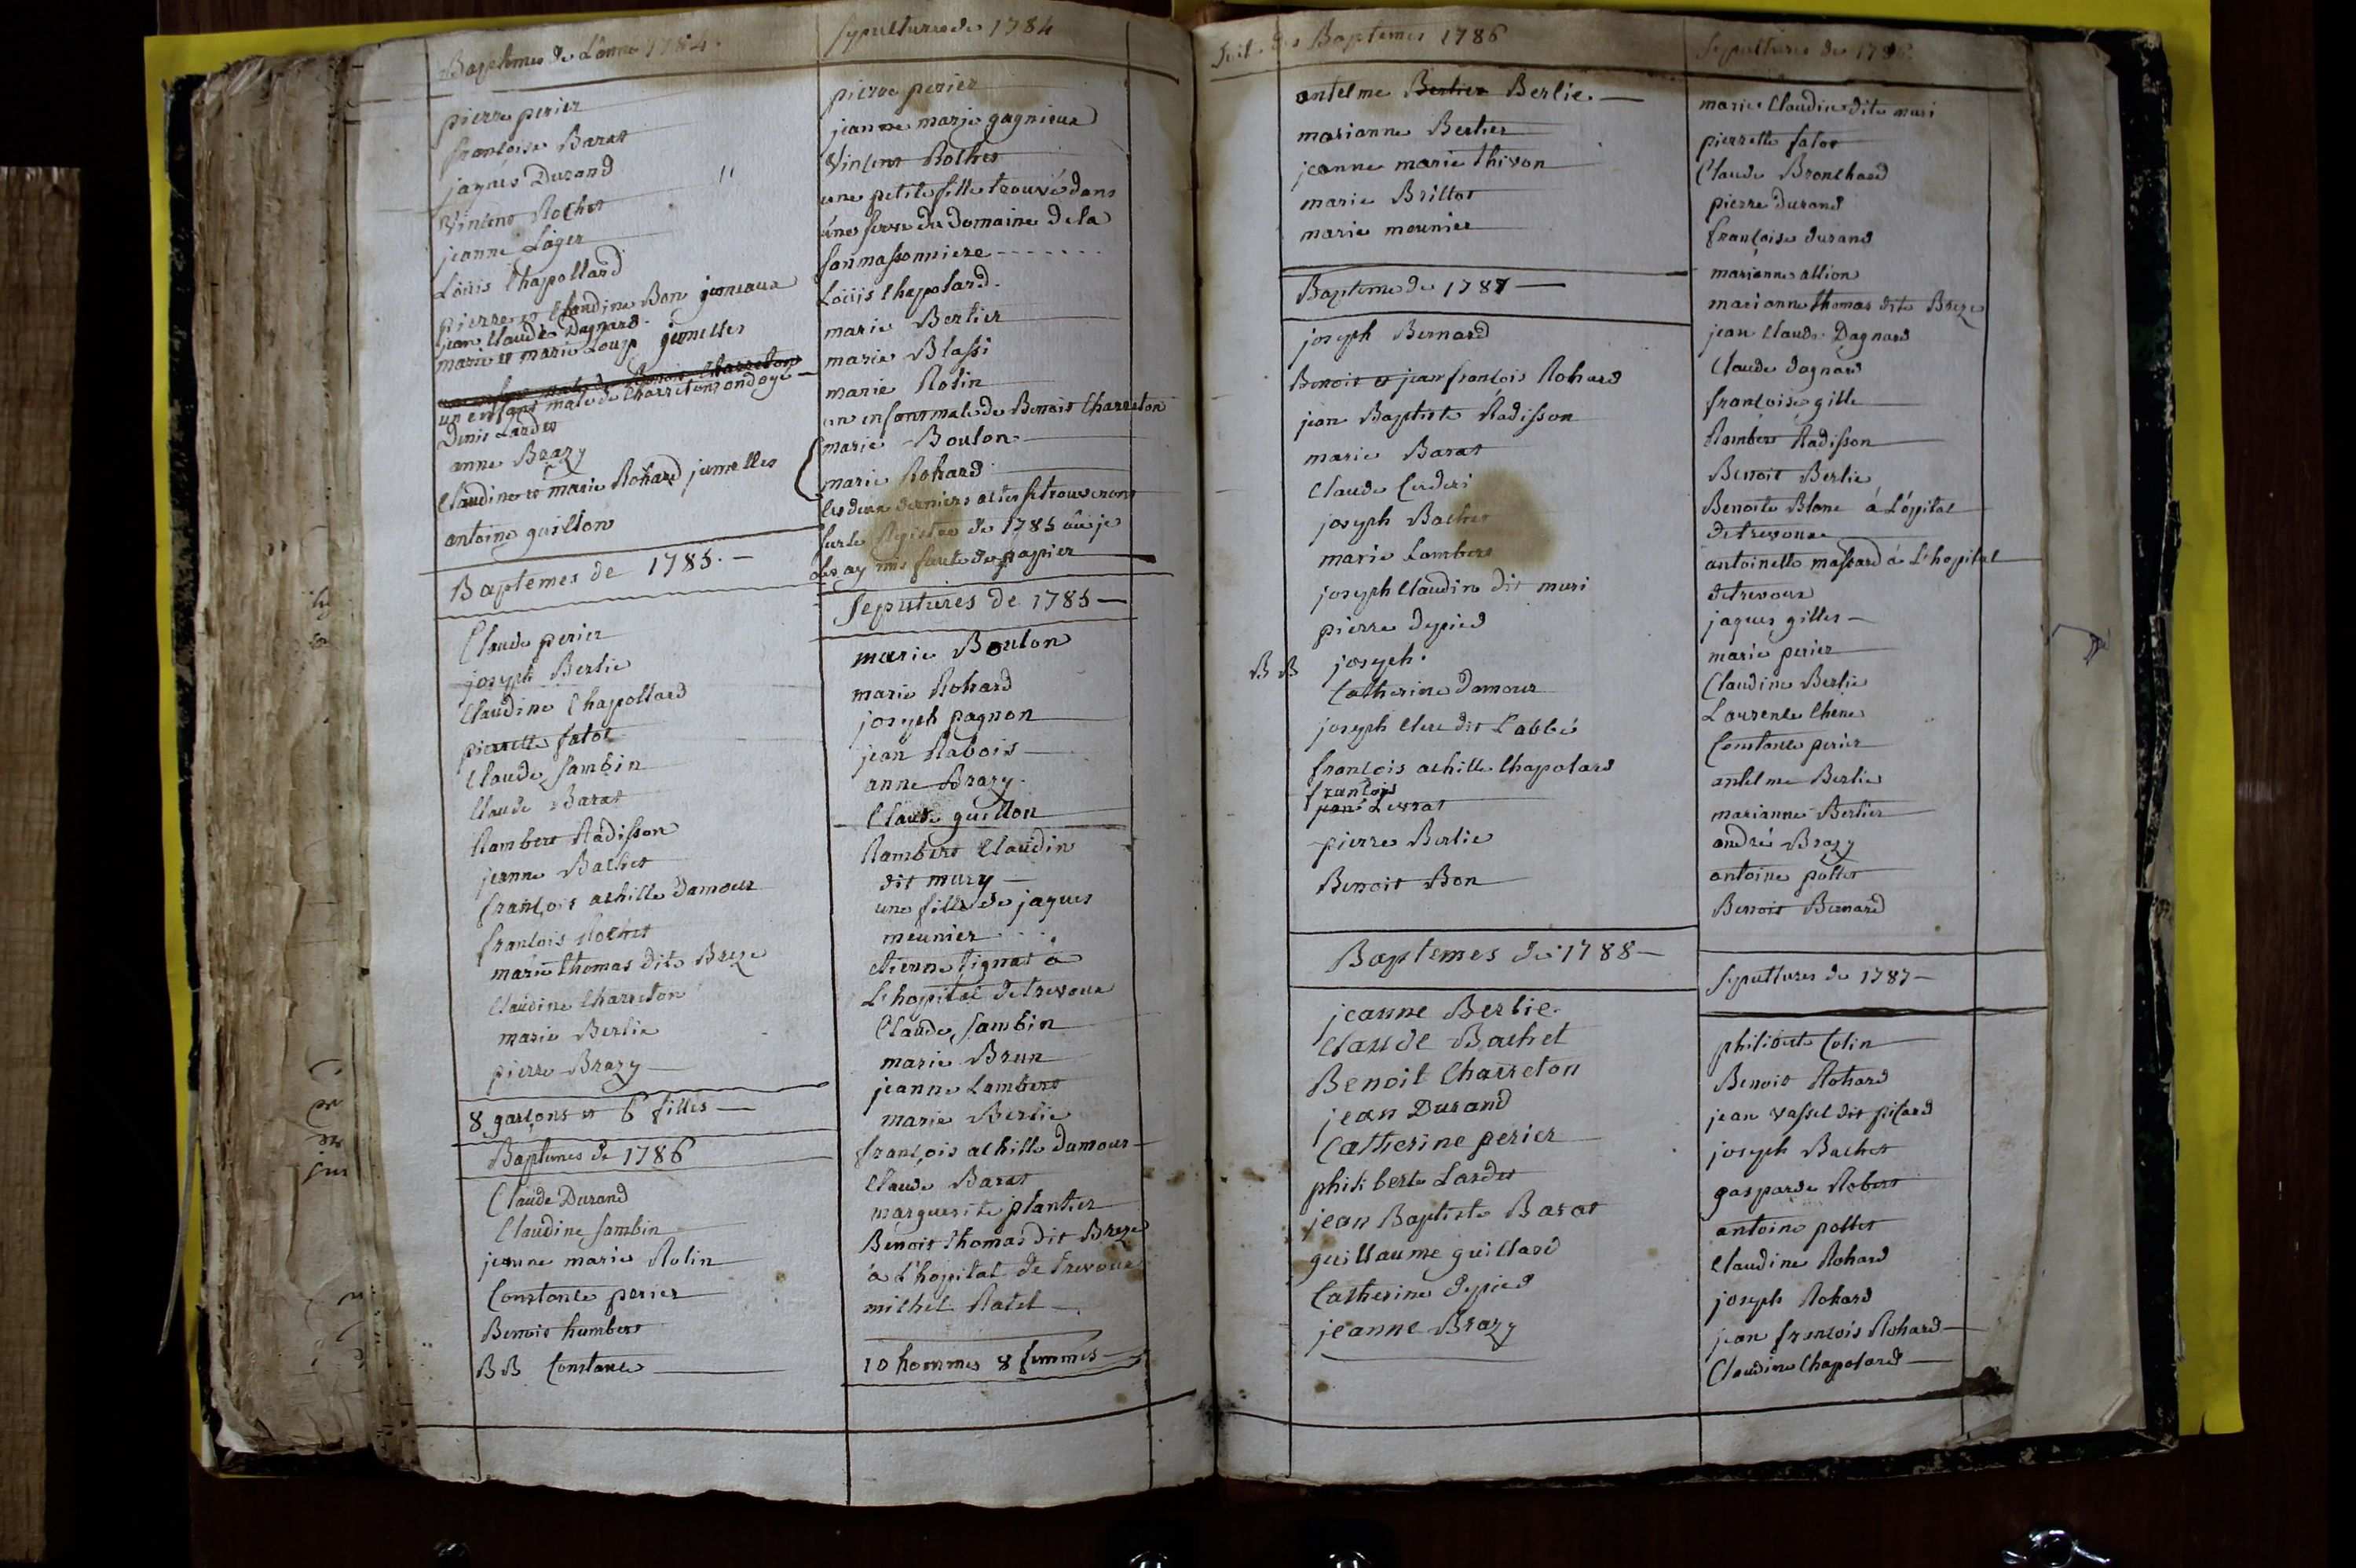 Baptemes de L'année 1784.
pierre perier
francoise Barat
jaques Durand
Vincent Rochet
jeanne Léger
Loüis Chapollard
pierre et Claudine Bon jumeaux
jean Claude Dagnard.
marie et marie Loup jumelles
un enfant male de Charreton ondoyé
Denis Lardet
anne Brazy
Claudine et marie Rohard jumelles
antoine guillon
Baptemes de 1785.
Claude perier
joseph Berlie
Claudine Chapollard
pierrette fatot
Claude Sambin
Claude Barat
Rambert Radisson
jeanne Bachet
françois achille Damour
francois Rochet
marie thomas dite Breze
Claudine Charreton
marie Berlie
pierre Brazy
8 garçons et 6 filles
Baptemes de 1786
Claude Durand
Claudine Sambin
jeanne marie Rolin
Constance perier
Benoit humbert
BB Constance
Sepultures de 1784
pierre perier
jeanne marie gagnieux
Vincent Rochet
une petite fille trouvé dans
une serve du Domaine de la
Loüis Chapolard.
marie Berlier
marie Blassi
marie Rolin
un enfant male de Benoit Charreton
marie Boulon
marie Rohard
les deux derniers actes se trouveront
sur le Registre de 1785 où je
les ay mis faute de papier
Sepultures de 1785
marie Boulon
marie Rohard
joseph pagnon
jean Rabois
anne Brazy.
Claude guillon
Rambert Claudin
dit mury
une fille de jaques
meunier
etienne Signat a
L'hopital de trevoux
Claude Sambin
marie Brun
jeanne Lambert
marie Berlie
françois achille Damour
Claude Barat
marguerite plantier
Benoit thomas dit Breze
a L'hopital de trevoux
michel Ratel
10 hommes 8 femmes
Suite des Baptemes 1786
antelme Berlier Berlie.
marianne Berlier
jeanne marie thivon
marie Brillot
marie meunier
Bapteme de 1787
joseph Bernard
Benoit et jean françois Rohard
jean Baptiste Radisson
marie Barat
Claude
joseph Bachet
marie Lambert
joseph Claudin dit muri
pierre depied
BB joseph.
Catherine Damour
joseph Clerc dit L'abbé
francois achille Chapolard
francois
Levrat
pierre Berlie
Benoit Bon
Baptemes de 1788
jeanne Berlie.
Claude Bachet
Benoit Charreton
jean Durand
Catherine perier
philiberte Lardet
jean Baptiste Barat
guillaume guillard
Catherine depied
jeanne Brazy
Sepultures de 1786
marie Claudin dite muri
pierrette fatot
Claude Bronchard
pierre Durand
françoise durand
marianne allion
marianne thomas dite Breze
jean Claude Dagnard
Claude dagnard
françoise gille
Rambert Radisson
Benoit Berlie
Benoite Blanc à L'opital
de trevoux
antoinette massard à L'hopital
de trevoux
jaques gilles
marie perier
Claudine Berlie
Laurence Chene
Constance perier
antelme Berlie
marianne Berlier
andré Brazy
antoine pottet
Benoit Bernard
Sepultures de 1787
philiberte Colin
Benoit Rohard
jean vassel dit picard
joseph Bachet
gasparde Robert
antoine pottet
Claudine Rohard
joseph Rohard
jean francois Rohard
Claudine Chapolard